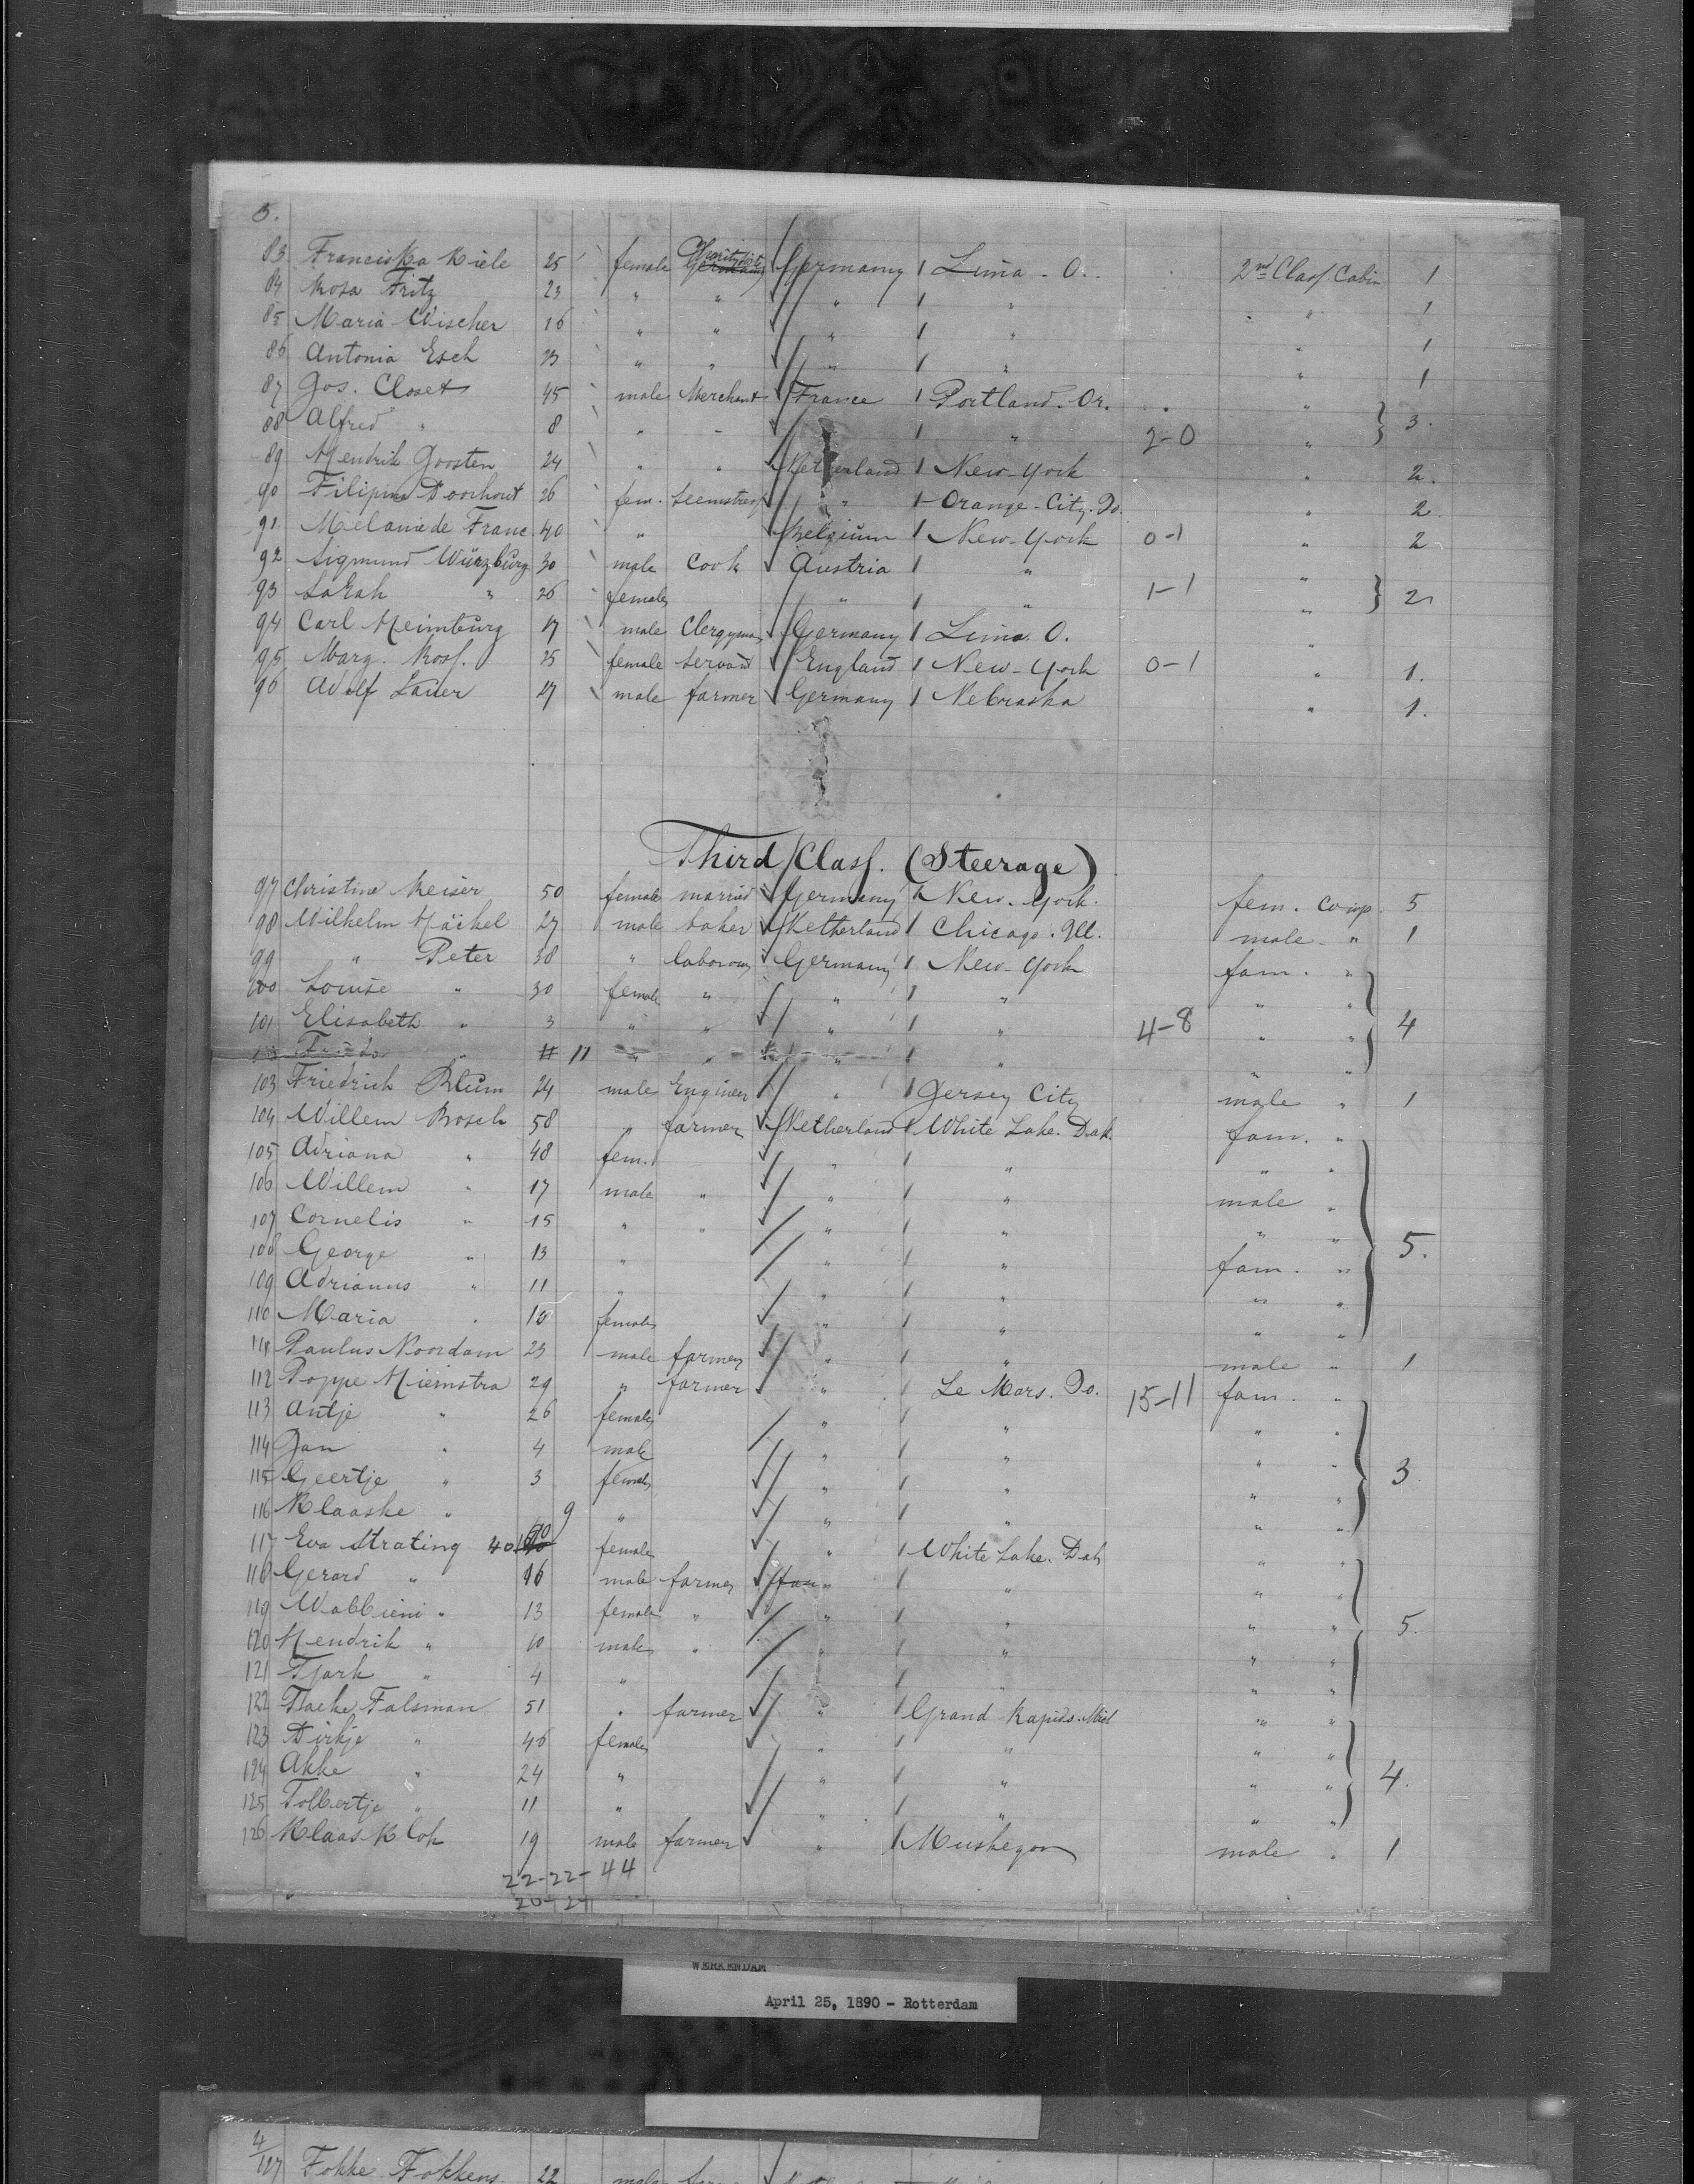 3.
83 Franciska Miele 25 female Germany Germany Lima - O. 2nd Class Cabin 1
84 Rosa Fritz 23 " " " " " 1
85 Maria Wischer 16 " " " " " 1
86 Antonia Esch 23 " " " " " 1
87 Jos. Closet 45 male Merchant France Portland. Or. "
88 Alfred " 8 " - " 2-0 " 3.
89 Hendrik Goosten 24 " " Netherland New-York " 2.
90 Filipina Doorhout 26 fem. Seemstress " Orange-City. Io. " 2
91 Melanie de Franc 40 " Belgium New-York 0-1 " 2
92 Sigmund Würzburg 30 male Cook Austria " "
93 Sarah " 26 female " " 1-1 " 2
94 Carl Heimburg 17 male Clergyman Germany Lima. O. "
95 Marg. Ross. 25 female Servant England New-York 0-1 " 1.
96 Adolf Lauer 27 male farmer Germany Nebraska " 1.
Third Class. (Steerage)
97 Christine Meiser 50 female married Germany New-York. fem. comp. 5
98 Wilhelm Häckel 27 male baker Netherland Chicago. Ill. male " 1
99 " Peter 38 " laborour Germany New-York fam. "
100 Louise " 30 female " " " " "
101 Elisabeth " 3 " " " " 4-8 " " 4
Frieda " 11 " " " " " "
103 Friedrich Blum 24 male Engineer " Jersey City male " 1
104 Willem Bosch 58 " farmer Netherland White Lake. Dak. fam. "
105 Adriana " 48 fem. " " " "
106 Willem " 17 male " " " male "
107 Cornelis " 15 " " " " " "
108 George " 13 " " " fam. " 5.
109 Adrianus " 11 " " " " "
110 Maria " 10 female " " " "
111 Paulus Noordam 23 male farmer " " male " 1
112 Poppe Miemstra 29 " farmer " Le Mars. Io. 15-11 fam. "
113 Antje " 26 female " " " "
114 Jan " 4 male " " " "
115 Geertje " 3 female " " " " 3.
116 Klaaske " 9 " " " " "
117 Eva Strating 40 female " White Lake. Dak " "
118 Gerard " 16 male farmer " " " "
119 Wabbieni " 13 female " " " " " 5.
120 Hendrik " 10 male " " " " "
121 Tjark " 4 " " " " "
122 Taeke Talsman 51 " farmer " Grand Rapids. Mich " "
123 Dirkje " 46 female " " " "
124 Akke " 24 " " " " " 4.
125 Tolbertje " 11 " " " " "
126 Klaas Klok 19 male farmer " Muskegon male " 1
22-22-44
20-24
WERKENDAM
April 25, 1890 - Rotterdam
4
127 Fokke Fokkens 22